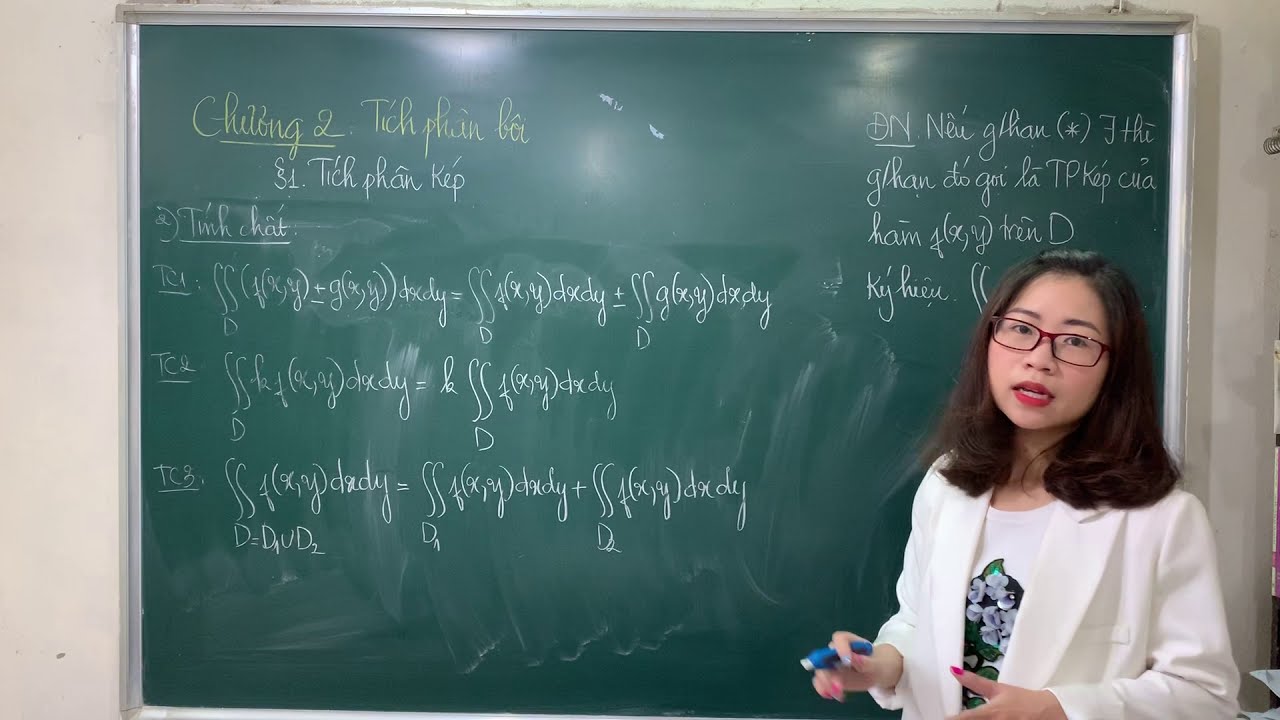 Chương 2. Tích phân bội
§1. Tích phân kép
2) Tính chất:
TC1: ∬(f(x,y) ± g(x,y))dxdy = ∬f(x,y)dxdy ± ∬g(x,y)dxdy
D D D
TC2 ∬k f(x,y)dxdy = k ∬f(x,y)dxdy
D D
TC3: ∬f(x,y)dxdy = ∬f(x,y)dxdy + ∬f(x,y)dxdy
D=D₁∪D₂ D₁ D₂
ĐN. Nếu g/hạn (*) ∃ thì
g/hạn đó gọi là TP kép của
hàm f(x,y) trên D
Ký hiệu. ∬